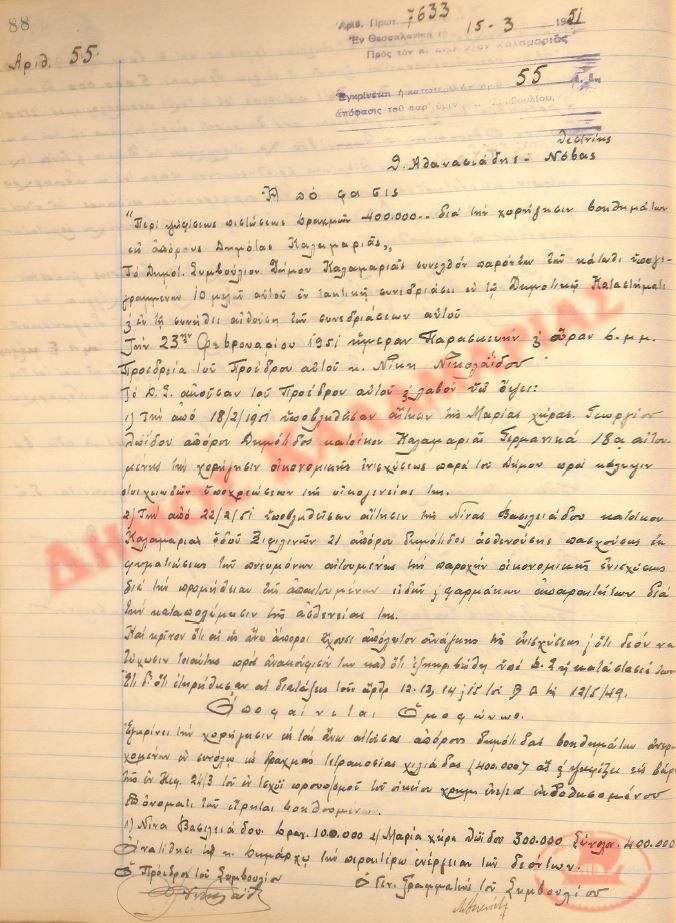 88
Αριθ. Πρωτ. 7633
Ἐν Θεσσαλονίκῃ τῇ 15-3-1951
Πρὸς τὸν κ. Καλαμαριᾶς
Ἀριθ. 55.
Ἐγκρίνεται ἡ 55
ἀπόφασις τοῦ παρ' ὑμῖν Συμβουλίου.
Θ. Ἀθανασιάδης - Νόβας
Ἀπόφασις
"Περὶ ψηφίσεως πιστώσεως δραχμῶν 400.000.- διὰ τὴν χορήγησιν βοηθημάτων
εἰς ἀπόρους Δημότας Καλαμαριᾶς„
Τὸ Δημοτ. Συμβούλιον Δήμου Καλαμαριᾶς συνελθὸν παρόντων τῶν κάτωθι ὑπογε-
γραμμένων 10 μελῶν αὐτοῦ ἐν τακτικῇ συνεδριάσει ἐν τῷ Δημοτικῷ Καταστήματι
& ἐν τῇ συνήθει αἰθούσῃ τῶν συνεδριάσεων αὐτοῦ
Τὴν 23ην Φεβρουαρίου 1951 ἡμέραν Παρασκευὴν & ὥραν 6 μ.μ.
Προεδρείᾳ τοῦ Προέδρου αὐτοῦ κ. Νίκη Νικολαΐδου
Τὸ Δ.Σ. ἀκοῦσαν τοῦ Προέδρου αὐτοῦ & λαβὸν ὑπ' ὄψει:
1) Τὴν ἀπὸ 18/2/1951 ὑποβληθεῖσαν αἴτησιν τῆς Μαρίας χήρας Γεωργίου
Λωΐδου ἀπόρου Δημότιδος κατοίκου Καλαμαριᾶς Γερμανικά 18α αἰτου-
μένης τὴν χορήγησιν οἰκονομικῆς ἐνισχύσεως παρὰ τοῦ Δήμου πρὸς κάλυψιν
στοιχειωδῶν ὑποχρεώσεων τῆς οἰκογενείας της.
2) Τὴν ἀπὸ 22/2/51 ὑποβληθεῖσαν αἴτησιν τῆς Νίνας Βασιλειάδου κατοίκου
Καλαμαριᾶς ὁδοῦ 21 ἀπόρου δημότιδος ἀσθενούσης πασχούσης ἐκ
φυματιώσεως τῶν πνευμόνων αἰτουμένης τὴν παροχὴν οἰκονομικῆς ἐνισχύσεως
διὰ τὴν προμήθειαν τῆς ἀπαιτουμένων εἰδῶν & φαρμάκων ἀπαραιτήτων διὰ
τὴν καταπολέμησιν τῆς ἀσθενείας της.
Καὶ κρῖνον ὅτι αἱ ὡς ἄνω ἄποροι ἔχουσι ἀπόλυτον ἀνάγκην τῆς ἐνισχύσεως & ὅτι δέον νὰ
τύχωσιν τοιαύτης πρὸς ἀνακούφισίν των καθ' ὅτι ἐξηκριβώθη ὑπὸ Δ.Σ. ἡ κατάστασίς των
Ἔτι δ' ὅτι ἐτηρήθησαν αἱ διατάξεις τῶν ἄρθρ. 12.13,14 & 15 τοῦ Β Δ τῆς 12/5/49.
Ἀποφαίνεται Ὁμοφώνως.
Ἐγκρίνει τὴν χορήγησιν εἰς τὰς ἄνω αἰτούσας ἀπόρους δημότιδας βοηθημάτων ἀνερ-
χομένων ἐν συνόλῳ εἰς δραχμὰς τετρακοσίας χιλιάδας (400.000) ἃς & ψηφίζει εἰς βάρ-
τῆς ἐν Κεφ. 24/3 τοῦ ἐν ἰσχύϊ προϋπ/σμοῦ τοῦ οἰκείου χρημ.
Ἐπ' ὀνόματι τῶν εἰρημένων βοηθουμένων.
1) Νίνα Βασιλειάδου δραχ. 100.000 2/ Μαρία χήρα Λωΐδου 300.000 Σύνολα. 400.000
Ἀνατίθησι εἰς κ. Δήμαρχον τὴν περαιτέρω ἐνέργειαν τῶν δεόντων.
Ὁ Πρόεδρος τοῦ Συμβουλίου Ὁ Γεν. Γραμματεὺς τοῦ Συμβουλίου
ΔΗΜΟΣ ΚΑΛΑΜΑΡΙΑΣ